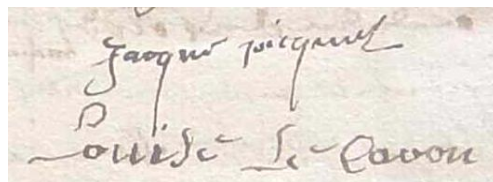 Jacque picquet
Louise Le Cavon